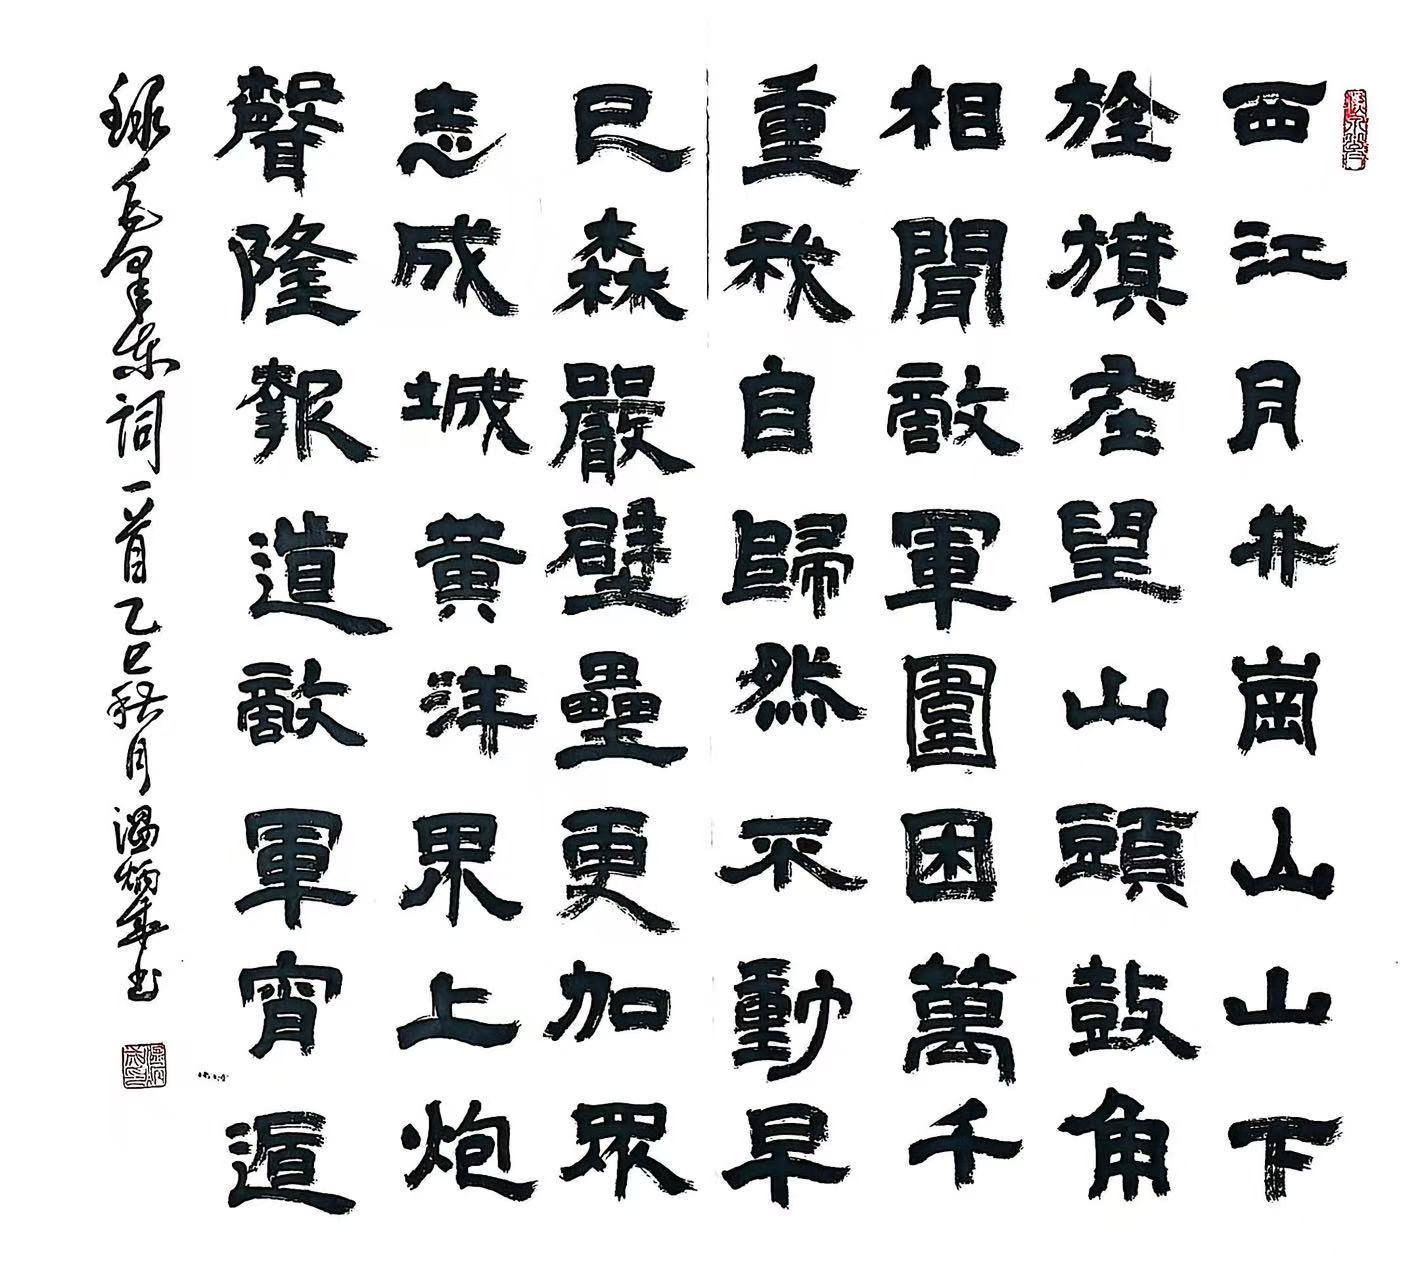 西江月井崗山山下
旌旗在望山頭鼓角
相聞敵軍圍困萬千
重我自歸然不動早
已森嚴壁壘更加眾
志成城黃洋界上炮
聲隆報道敵軍宵遁
錄毛澤東詞一首乙巳秋月溫炳年書